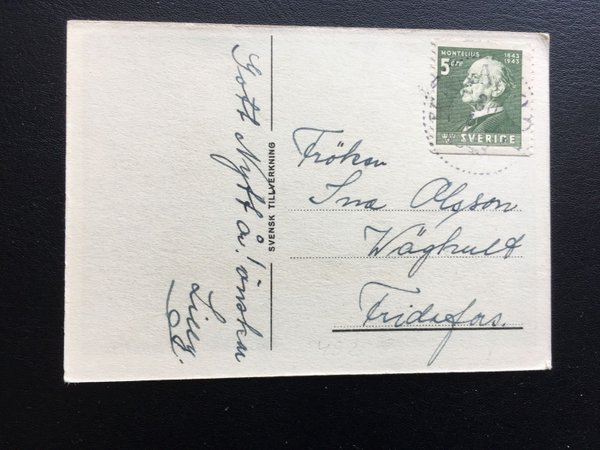 Gott Nytt å! önskar
Lilly.
SVENSK TILLVERKNING
MONTELIUS 1843
1943
5 öre
SVERIGE
Fröken
Ina Olsson
Wäghult
Fridafors.